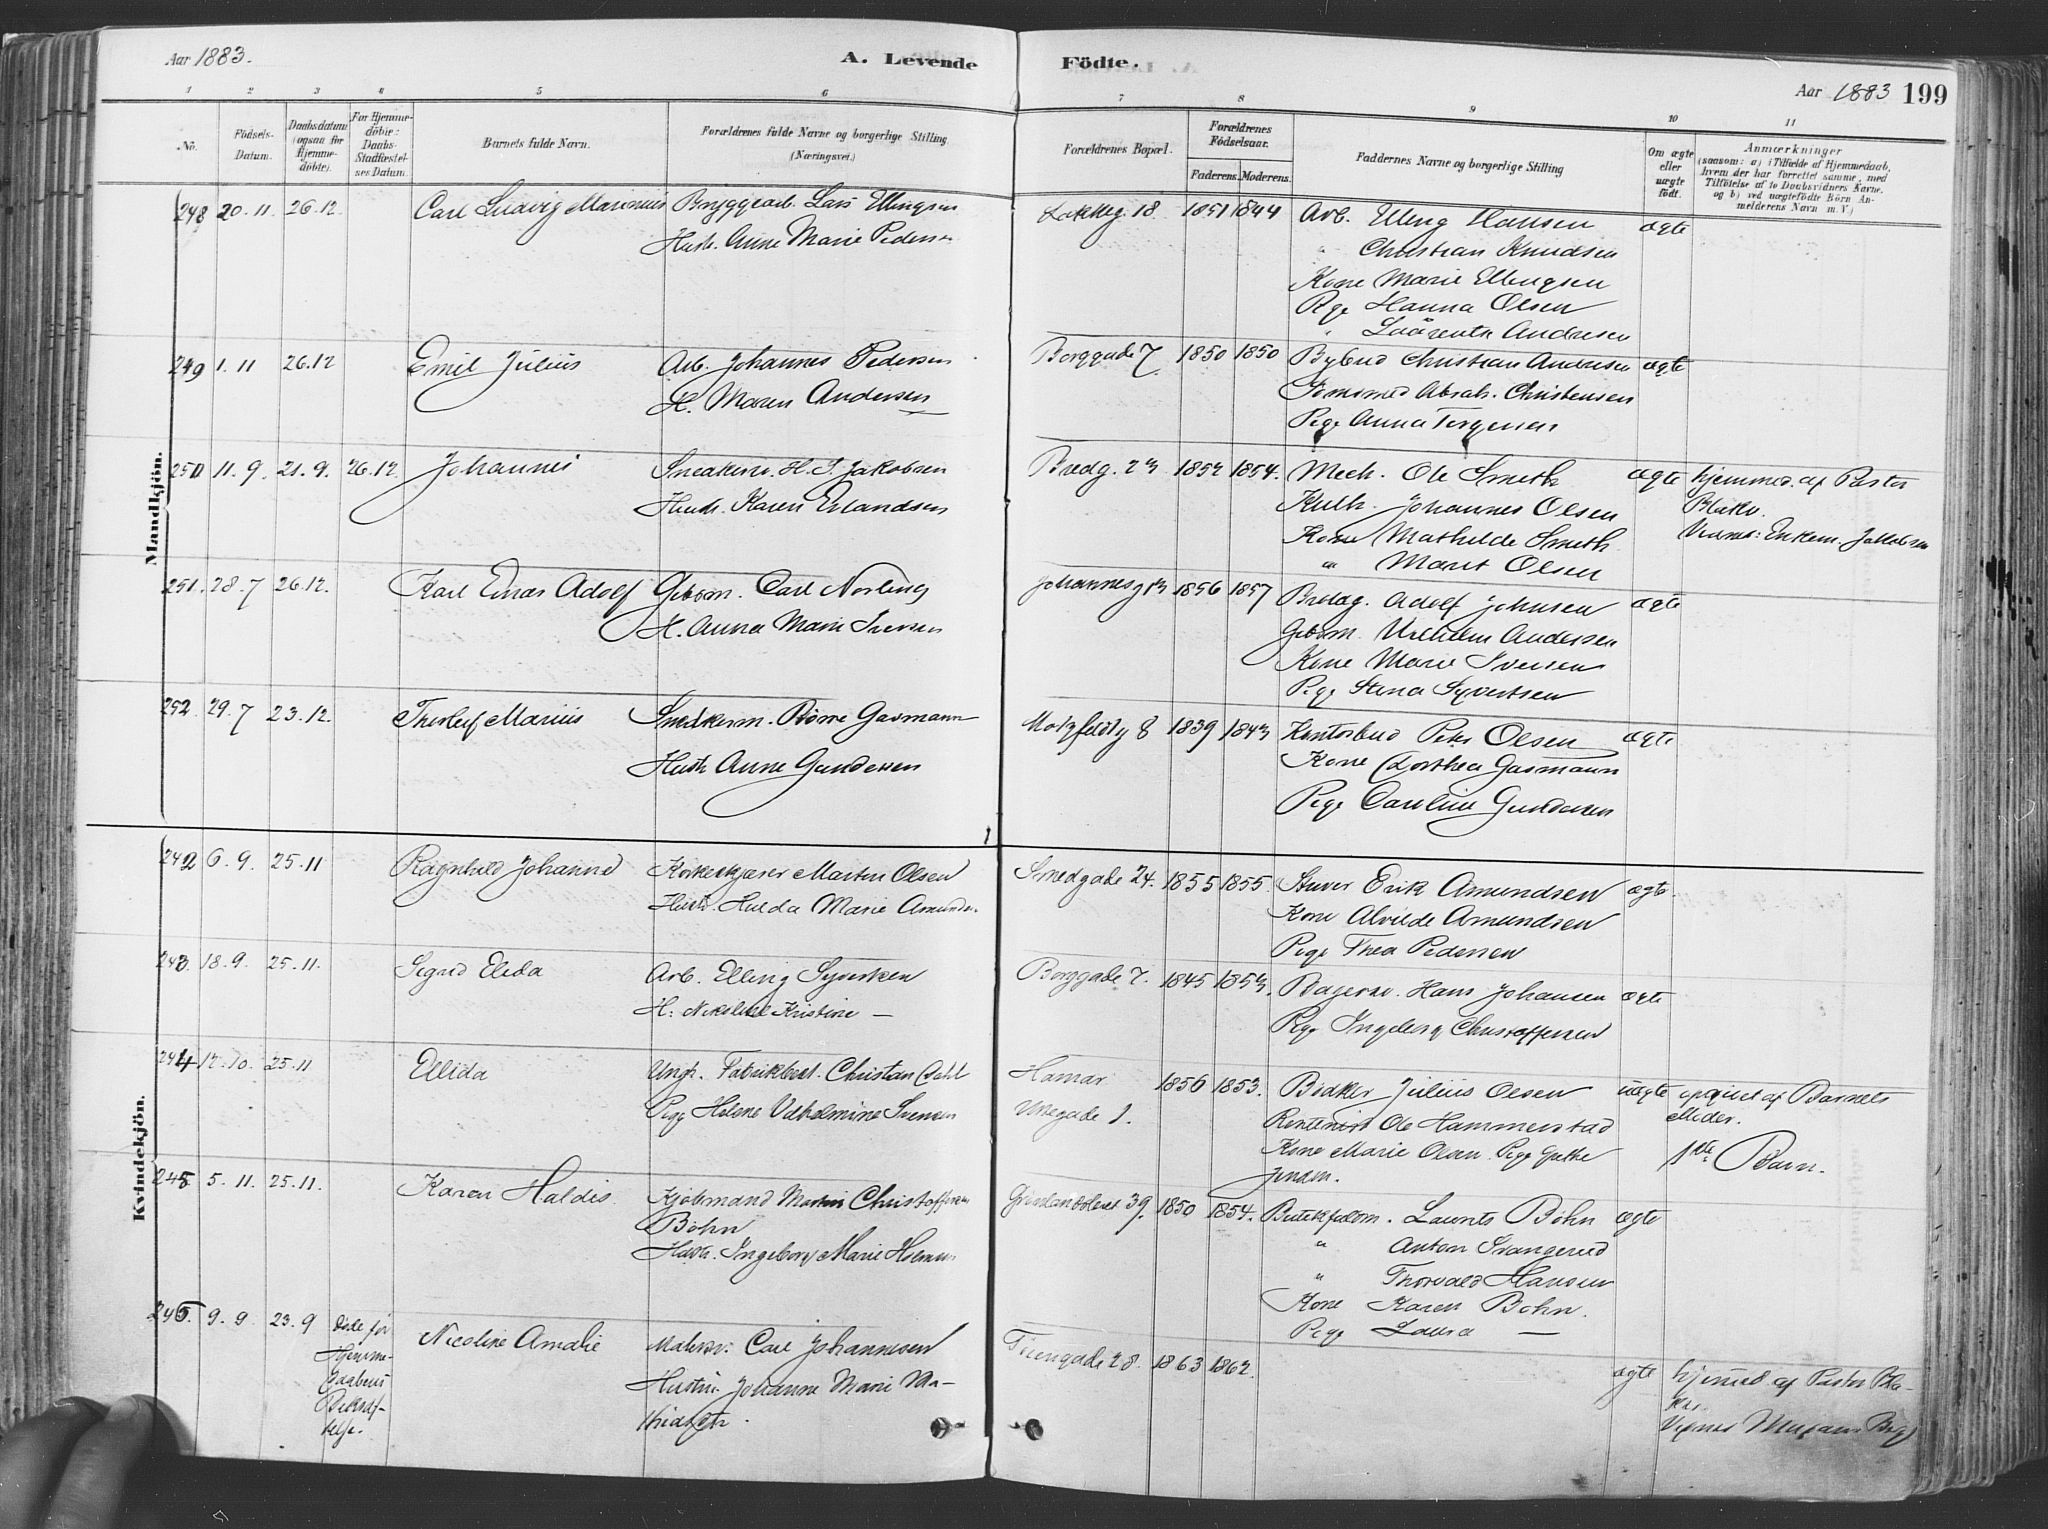 Aar 1883.
A. Levende
1 2 3 4 5 6
No.
Födsels-
Datum.
Daabsdatum
(ogsaa for
Hjemme-
döbte).
For Hjemme-
döbte:
Daabs-
Stadfæstel-
ses Datum.
Barnets fulde Navn.
Forældrenes fulde Navne og borgerlige Stilling
(Næringsvei.)
Mandkjön.
248 20.11 26.12. Carl Ludvig Marinius Bryggearb. Lars Ellingsen
Hustr. Anne Marie Peders
249 1.11 26.12 Emil Julius Arb. Johannes Pedersen
H. Maren Andersen
250 11.9. 21.9. 26.12 Johannes Snedkersv. H. J. Jakobsen
Hustr. Karen Erlandsen
251. 28.7 26.12. Karl Einar Adolf Gibsm. Carl Norling
H. Anna Marie Iversen
252 29.7 23.12. Thorleif Marius Snedkerm. Gasmann
Hustr Anne Gundersen
Kvindekjön.
242 6.9. 25.11 Ragnhild Johanne Martin Olsen
Hustr. Hulda Marie Amunds.
243. 18.9. 25.11. Sigrid Elida Arb. Elling Syvertsen
H. Kristine —
244 12.10. 25.11 Ellida Ungk. Fabrikbest. Christian Dahl
Pige Helene Vilhelmine Svensen
245 5.11. 25.11. Karen Haldis. Kjøbmand Martin Christoffersen
Bohn
Hustr. Ingeborg Marie
9.9. 23.9 Døde før
Hjemme-
daabens
Bekræf-
telse.
Nicoline Amalie Malersv. Carl Johannesen
Hustru Johanne Marie Ma-
thiasen.
Födte.
Aar 1883 199
7 8 9 10 11
Forældrenes Bopæl.
Forældrenes
Födselsaar.
Faderens. Moderens.
Faddernes Navne og borgerlige Stilling
Om ægte
eller
uægte
födt.
Anmærkninger
(saasom: a) i Tilfælde af Hjemmedaab,
hvem der har forrettet samme, med
Tilföielse af to Daabsvidners Navne.
og b) ved uægtefödte Börn An-
melderens Navn m. V.)
Lakkeg. 18. 1851 1844 Arb. Elling Hansen ægte
" Christian Knudsen
Kone Marie Ellingsen
Pige Hanna Olsen
" Andresen
Borggade 7. 1850 1850 Bybud Christian Andresen ægte
Abrah. Christensen
Pige Anna Torgersen
Bredg. 23 1852 1854. Mech. Ole Smeth ægte hjemmed. af Pastor
Kulh. Johannes Olsen
Kone Mathilde Smeth
Jakobsen
" Marit Olsen
Johannesg 13 1856 1857 Adolf Johnsen ægte
Gibsm. Vilhelm Andersen
Kone Marie Iversen
Pige Stina Syvertsen
Motzfeldtg 8 1839 1843 Kontorbud Peter Olsen ægte
Kone Dorthea Gasmann
Pige Caroline Gundersen
Smedgade 24. 1855 1855. Stuver Erik Amundsen ægte.
Kone Alvilde Amundsen
Pige Thea Pedersen
Borggade 7. 1845 1853. Bagersv. Hans Johansen ægte
Pige Ingeborg Christoffersen
Hamar 1856 1853. Julius Olsen uægte opgivet af Barnets
Moder.
1. Ole Hammerstad
Kone Marie Olsen. Pige 1ste Barn.
Jensen.
Grönlandsleret 39. 1850 1854. Laurits Bohn ægte
" Anton Svangerud
" Thorvald Hansen
Kone Karen Bohn.
Pige Laura —
28. 1863 1862. ægte hjemmed af Pastor Bla-